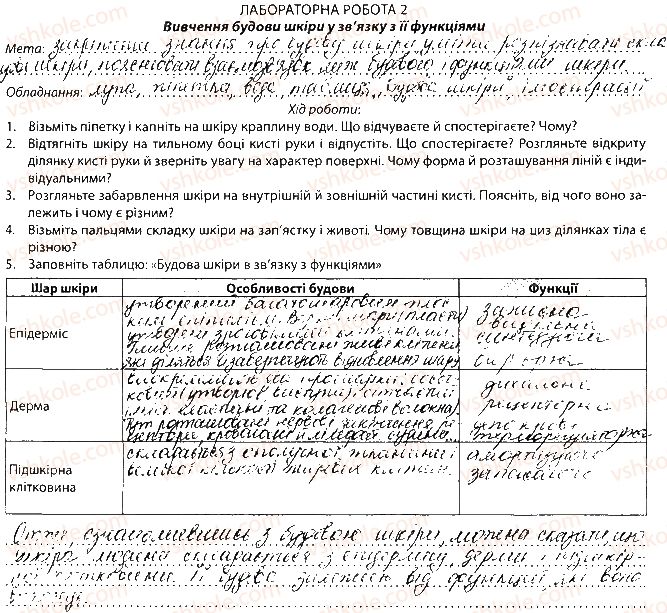 ЛАБОРАТОРНА РОБОТА 2
Вивчення будови шкіри у зв'язку з її функціями
Мета: закріпити знання про будову шкіри, уміти розпізнавати скла
шкіри, взаємозв'язок між будовою і функціями шкіри
Обладнання: лупа, піпетка, вода, таблиці, будова шкіри, ілюстрації
Хід роботи:
1. Візьміть піпетку і капніть на шкіру краплину води. Що відчуваєте й спостерігаєте? Чому?
2. Відтягніть шкіру на тильному боці кисті руки і відпустіть. Що спостерігаєте? Розгляньте відкриту
ділянку кисті руки й зверніть увагу на характер поверхні. Чому форма й розташування ліній є інди-
відуальними?
3. Розгляньте забарвлення шкіри на внутрішній й зовнішній частині кисті. Поясніть, від чого воно за-
лежить і чому є різним?
4. Візьміть пальцями складку шкіри на зап'ястку і животі. Чому товщина шкіри на циз ділянках тіла є
різною?
5. Заповніть таблицю: «Будова шкіри в зв'язку з функціями»
Шар шкіри Особливості будови Функції
Епідерміс
утворений багатошаровим плос
ким епітелієм.
утворені клітинами.
розташовані живі клітини
які діляться і забезпечують відновлення шару
захисна
видільна
Дерма
та колагенові волокна)
Тут розташовані нервові закінчення, ре
цептори, кровоносні й судини
дихальна
рецепторна
терморегуляторна
Підшкірна
клітковина
складається з сполучної тканини і
великої кількості жирових клітин.
амортизуюча
запасаюча
Отже, ознайомившись з будовою шкіри, можна сказати, що
шкіра людини складається з епідермісу, дерми і підшкір
ної клітковини. Її будова залежить від функцій, які вона
виконує